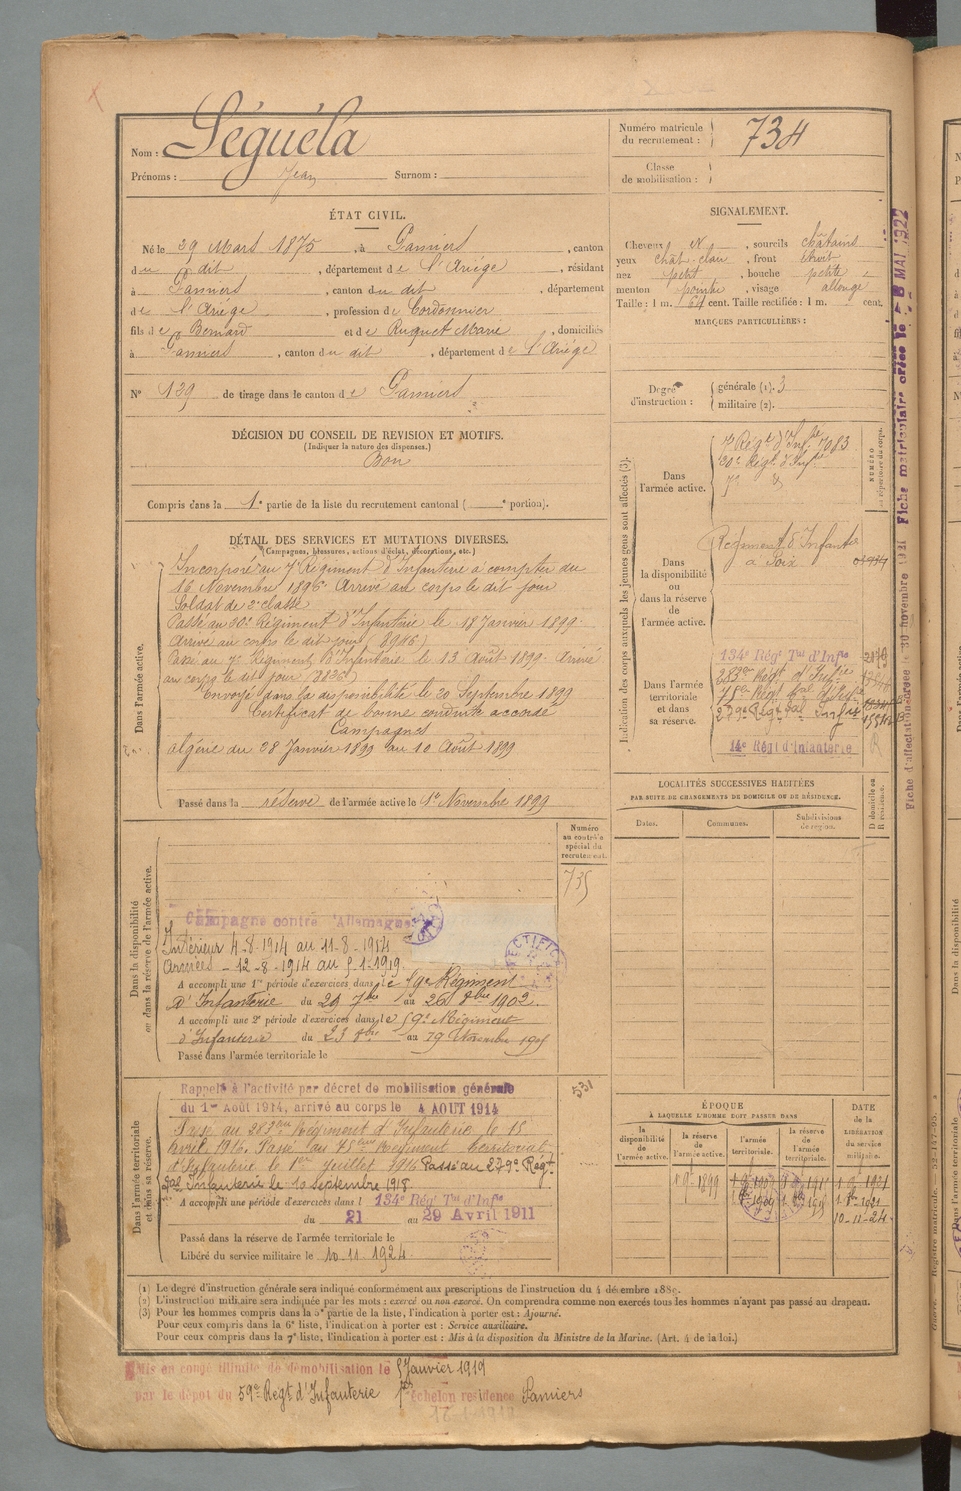 Nom : Séguéla
Prénoms : Jean Surnom :
Numéro matricule du recrutement : 734
Classe de mobilisation :
ÉTAT CIVIL.
Né le 29 Mars 1875, à Pamiers, canton
du dit, département de l'Ariège, résidant
à Pamiers, canton du dit, département
de l'Ariège, profession de Cordonnier
fils de Bernard et de Ruquet Marie, domiciliés
à Pamiers, canton du dit, département de l'Ariège
N° 129 de tirage dans le canton de Pamiers
SIGNALEMENT.
Cheveux N, sourcils châtains
yeux chât. clair, front étroit
nez petit, bouche petite
menton pointu, visage allongé
Taille : 1 m. 64 cent. Taille rectifiée : 1 m. cent.
MARQUES PARTICULIÈRES :
Degré d'instruction : générale (1). 3
militaire (2).
DÉCISION DU CONSEIL DE REVISION ET MOTIFS.
(Indiquer la nature des dispenses.)
Bon
Compris dans la 1e partie de la liste du recrutement cantonal ( e portion).
DÉTAIL DES SERVICES ET MUTATIONS DIVERSES.
(Campagnes, blessures, actions d'éclat, décorations, etc.)
Dans l'armée active.
Incorporé au 7e Régiment d'Infanterie à compter du
16 Novembre 1896. Arrivé au corps le dit jour
Soldat de 2e classe
Passé au 20e Régiment d'Infanterie le 18 Janvier 1899.
Arrivé au corps le dit jour
Passé au 7e Régiment d'Infanterie le 13 Août 1899. Arrivé
au corps le dit jour
Envoyé dans la disponibilité le 20 Septembre 1899
Certificat de bonne conduite accordé
Campagnes
Algérie du 28 Janvier 1899 au 10 Août 1899
Passé dans la réserve de l'armée active le 1er Novembre 1899
Indication des corps auxquels les jeunes gens sont affectés (3).
NUMÉRO au répertoire du corps.
Dans l'armée active.
7e Régt d'Infie 7083
20e Régt d'Infie
7e d
Dans la disponibilité ou dans la réserve de l'armée active.
Régiment d'Infanterie
à Foix
Dans l'armée territoriale et dans sa réserve.
134e Régt Tal d'Infie
283ème Régt d'Infie
75ème Régt tal d'Infie
279e Régt tal Infie
14e Régt d'Infanterie
LOCALITÉS SUCCESSIVES HABITÉES
PAR SUITE DE CHANGEMENTS DE DOMICILE OU DE RÉSIDENCE.
Dates. Communes. Subdivisions de région.
D domicile ou R résidence.
Numéro au contrôle spécial du recrutement.
735
Dans la disponibilité ou dans la réserve de l'armée active.
Campagne contre l'Allemagne
Intérieur 4-8-1914 au 11-8-1914
Armées - 12-8-1914 au 5-1-1919.
RECTIFICA
A accompli une 1re période d'exercices dans le 59e Régiment
d'Infanterie du 29 7bre au 26 8bre 1902.
A accompli une 2e période d'exercices dans le 59e Régiment
d'Infanterie du 23 8bre au 19 Novembre 1905
Passé dans l'armée territoriale le
531
Dans l'armée territoriale et dans sa réserve.
Rappelé à l'activité par décret de mobilisation générale
du 1er Août 1914, arrivé au corps le 4 AOUT 1914
Passé au 283ème Régiment d'Infanterie le 15
Avril 1916. Passé au 75ème Régiment territorial
d'Infanterie le 1er Juillet 1916. Passé au 279e Régt
tal Infanterie le 10 septembre 1918
A accompli une période d'exercices dans l 134e Régt Tal d'Infie
du 21 au 29 Avril 1911
Passé dans la réserve de l'armée territoriale le
Libéré du service militaire le 10.11.1924.
ÉPOQUE
À LAQUELLE L'HOMME DOIT PASSER DANS
la disponibilité de l'armée active. la réserve de l'armée active. l'armée territoriale. la réserve de l'armée territoriale.
DATE de la LIBÉRATION du service militaire.
1 9bre 1899
1. 8bre 1921
10-11-24.
(1) Le degré d'instruction générale sera indiqué conformément aux prescriptions de l'instruction du 4 décembre 1889.
(2) L'instruction militaire sera indiquée par les mots : exercé ou non exercé. On comprendra comme non exercés tous les hommes n'ayant pas passé au drapeau.
(3) Pour les hommes compris dans la 5e partie de la liste, l'indication à porter est : Ajourné.
Pour ceux compris dans la 6e liste, l'indication à porter est : Service auxiliaire.
Pour ceux compris dans la 7e liste, l'indication à porter est : Mis à la disposition du Ministre de la Marine. (Art. 4 de la loi.)
Mis en congé illimité de démobilisation le 5 Janvier 1919
par le dépôt du 59e Régt d'Infanterie 1er échelon résidence Pamiers
Fiche d'affectation créée le 30 novembre 1921 Fiche matriculaire créée le 8 MAI 1922